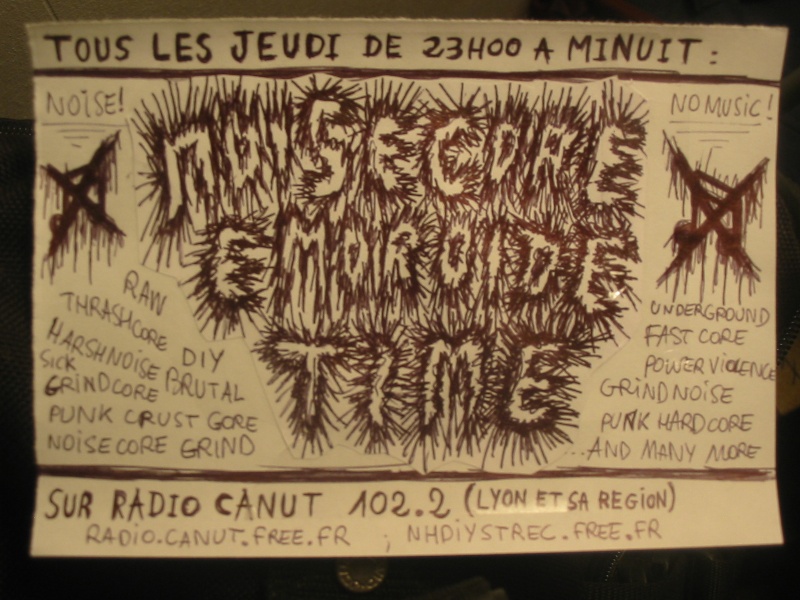 TOUS LES JEUDI DE 23H00 A MINUIT :
NOISE!
NOMUSIC!
NOISECORE
EMOROIDE
TIME
RAW
THRASHCORE
HARSHNOISE DIY
SICK
GRINDCORE BRUTAL
PUNK CRUST GORE
NOISECORE GRIND
UNDERGROUND
FAST CORE
POWER VIOLENCE
GRINDNOISE
PUNK HARDCORE
...AND MANY MORE
SUR RADIO CANUT 102.2 (LYON ET SA REGION)
RADIO.CANUT.FREE.FR ; NHDIYSTREC.FREE.FR